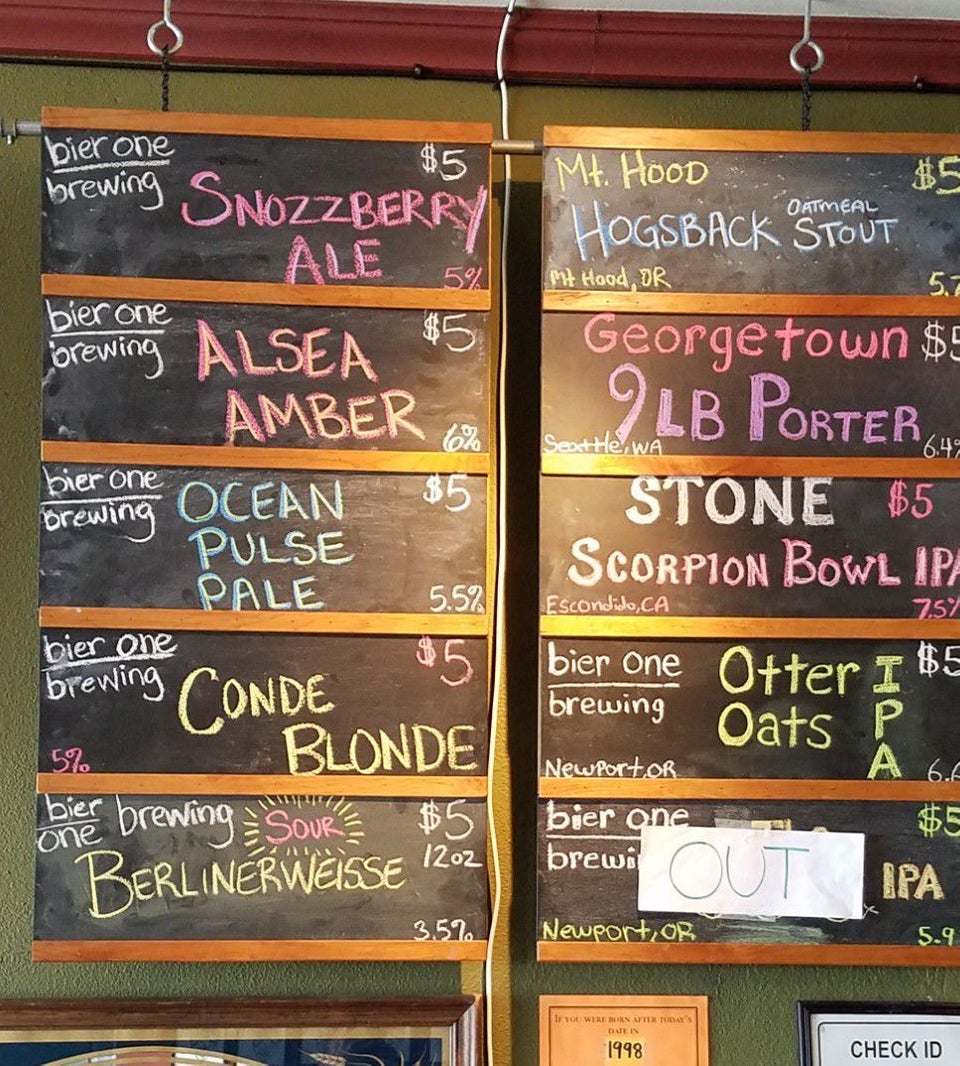 bier one
brewing
$5
SNOZZBERRY
ALE
5%
bier one
brewing
$5
ALSEA
AMBER
6%
bier one
brewing
$5
OCEAN
PULSE
PALE
5.5%
bier one
brewing
$5
CONDE
BLONDE
5%
bier one brewing
SOUR
$5
12oz
BERLINERWEISSE
3.5%
Mt. HOOD
$5
HOGSBACK OATMEAL STOUT
Mt Hood, OR
5.7
Georgetown
$5
9 LB PORTER
Seattle, WA
6.4%
STONE
$5
SCORPION BOWL IPA
Escondido, CA
7.5%
bier one
brewing
Otter
Oats
IPA
$5
Newport, OR
6.
bier one
$5
OUT
IPA
Newport, OR
5.9
IF YOU WERE BORN AFTER TODAY'S
DATE IN
1998
CHECK ID